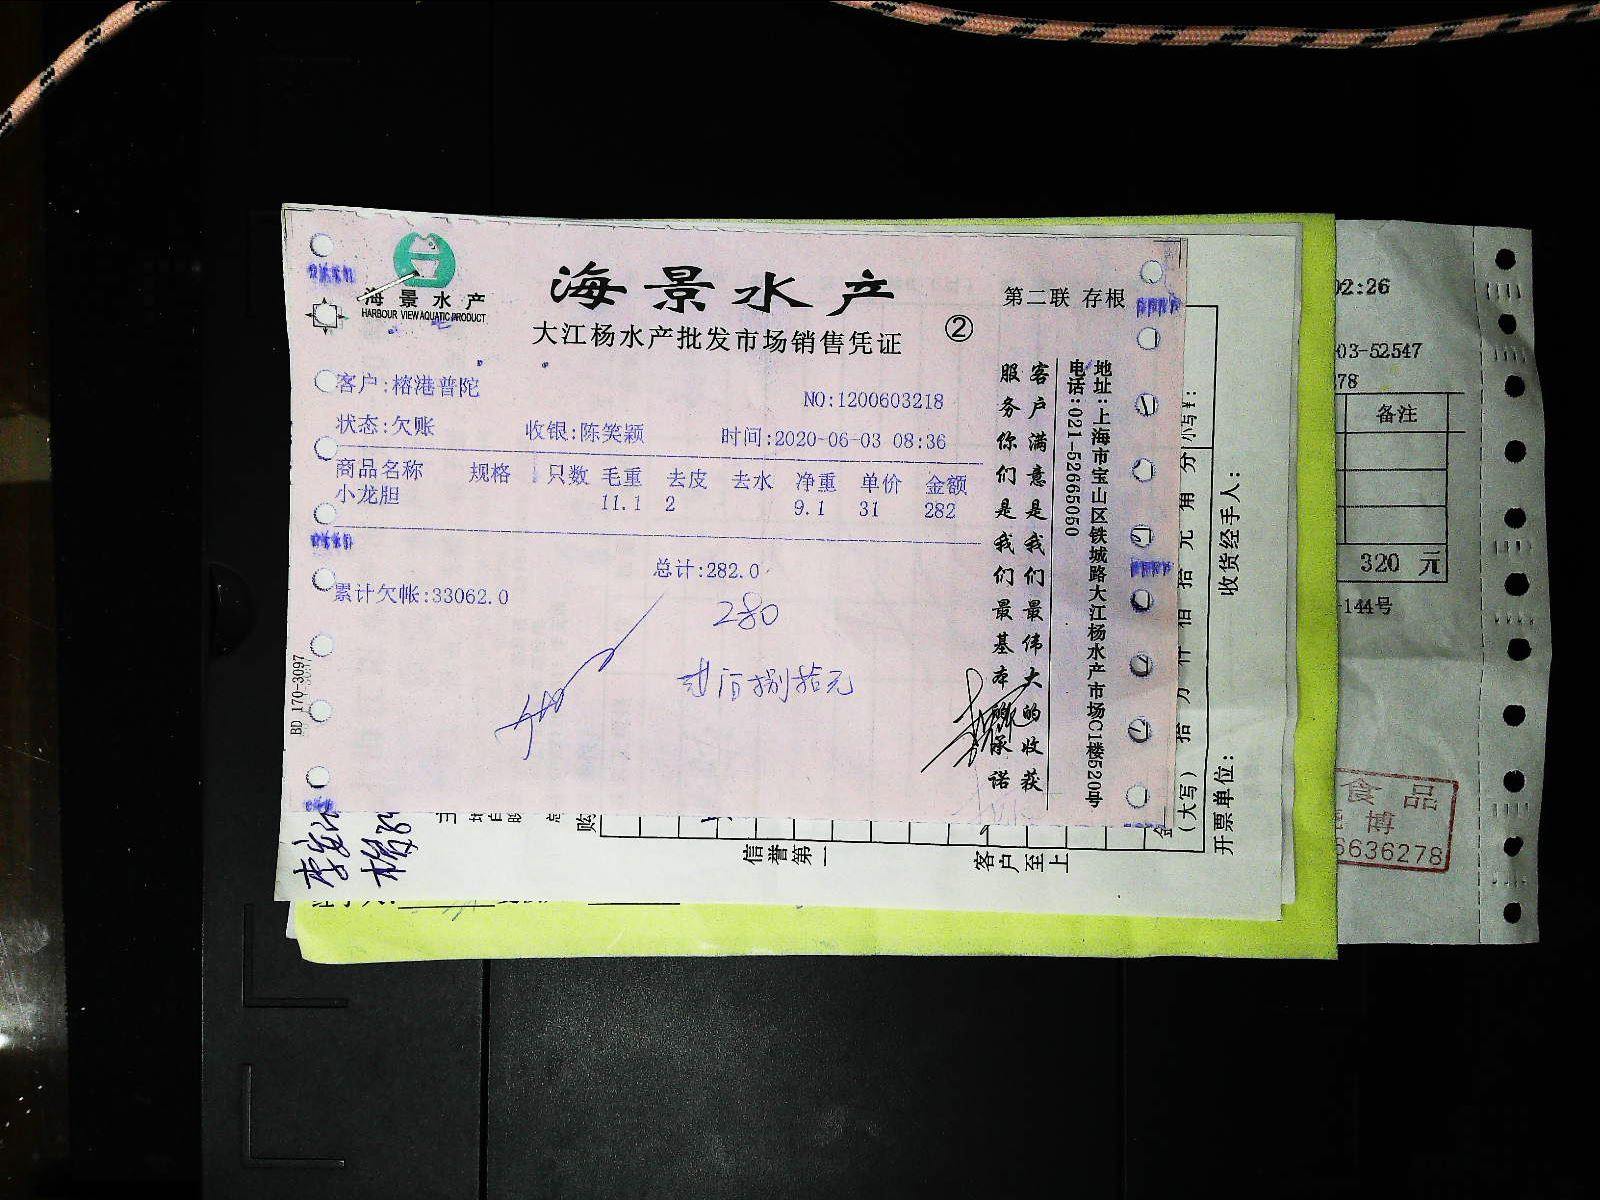 海景水产
HARBOUR VIEW AQUATIC PRODUCT
海景水产
大江杨水产批发市场销售凭证
②
第二联 存根
客户:榕港普陀
NO:1200603218
状态:欠账 收银:陈笑颖 时间:2020-06-03 08:36
商品名称 规格 只数 毛重 去皮 去水 净重 单价 金额
小龙胆 11.1 2 9.1 31 282
总计:282.0
累计欠帐:33062.0
280
贰佰捌拾元
客户满意是我们最伟大的收获
服务你们是我们最基本的承诺
地址:上海市宝山区铁城路大江杨水产市场C1楼520号
电话:021-52665050
BD 170-3097
信誉第一
客户至上
小写¥:
(大写) 拾 万 仟 佰 拾 元 角 分
收货经手人:
开票单位:
02:26
03-52547
278
备注
320 元
-144号
食品
博
6636278